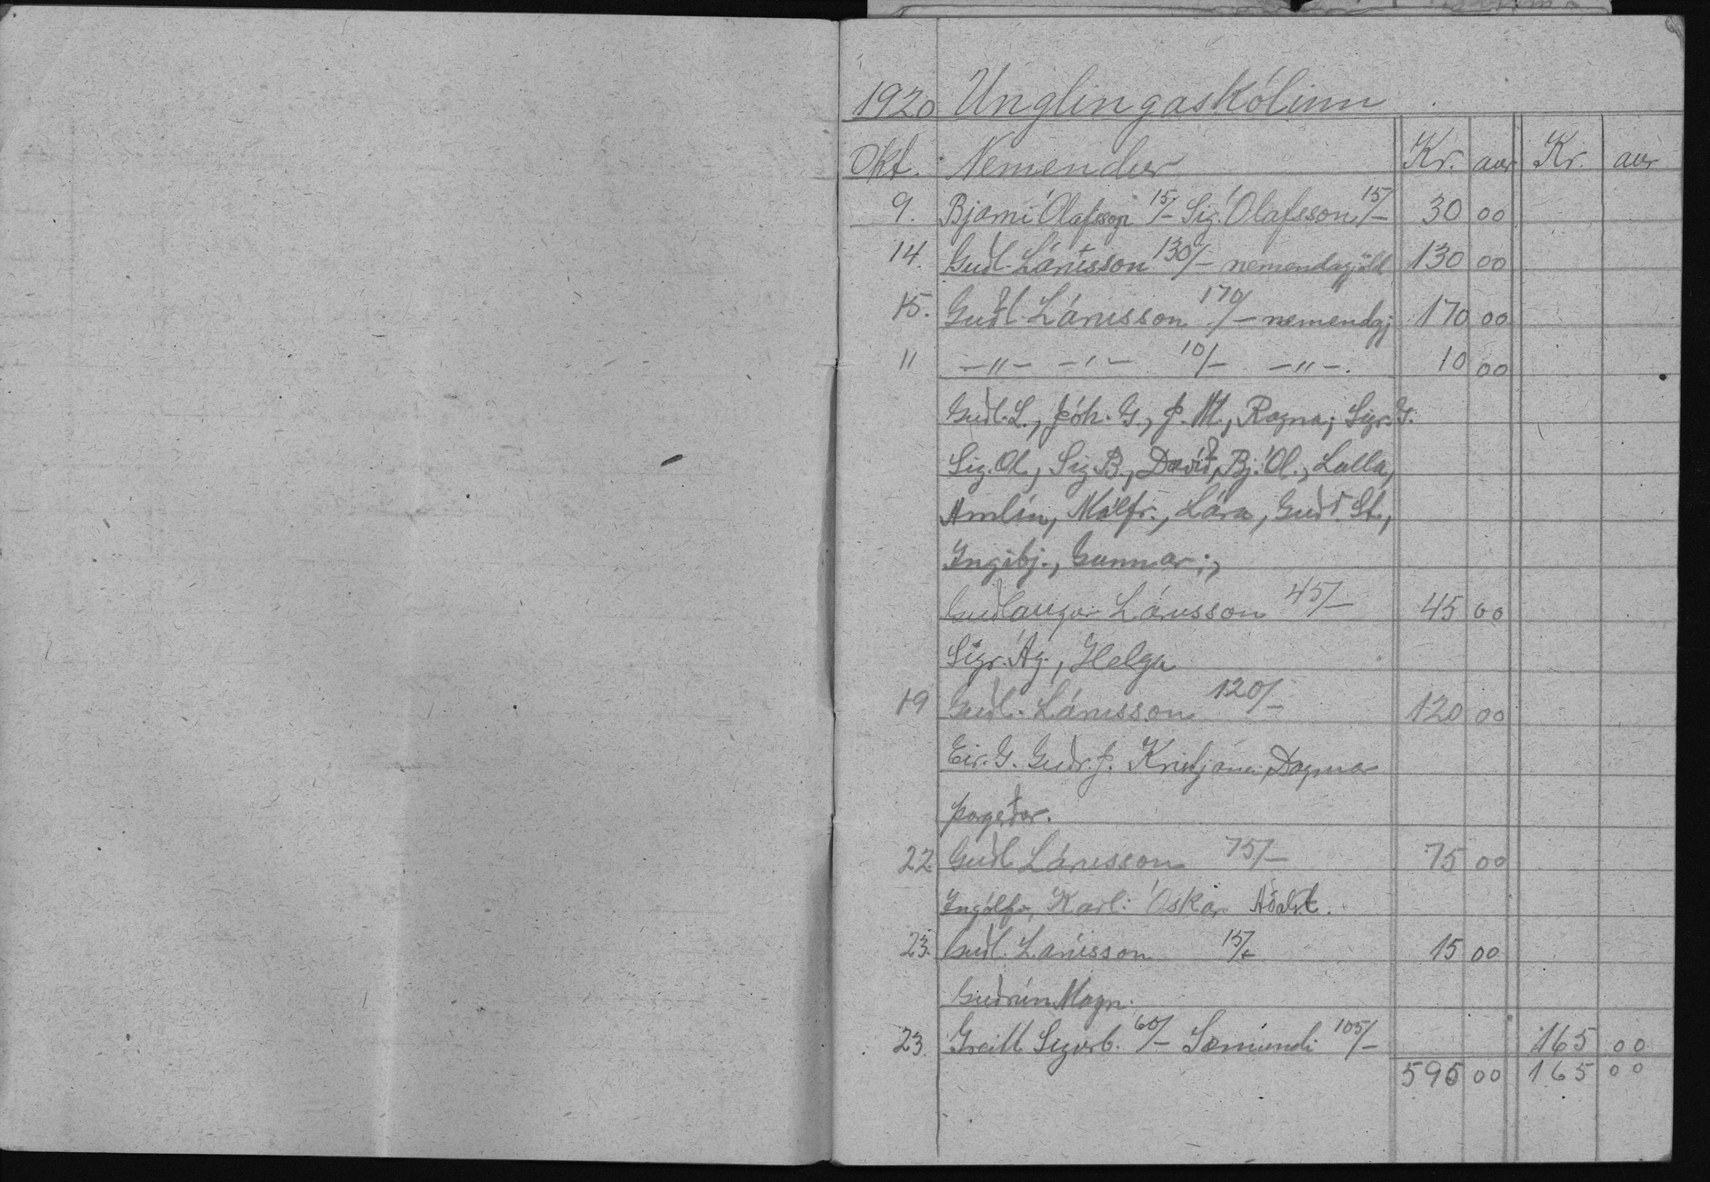 1920 Unglingaskólinn
Okt. Nemendur Kr. aur Kr. aur
9. Bjarni Ólafsson 15/- Sig. Ólafsson 15/- 30 00
14. Guðl. Lárusson 130/- nemendagjöld 130 00
15. Guðl. Lárusson 170/- nemendagj 170 00
" -"- -"- 10/- -"-. 10 00
Guðl. L., Jóh. G., J. M., Ragna, Sigr. G.
Sig. Ól., Sig. B., Davíð, Bj. Ól., Lalla,
Málfr., Lára, Guðr. St.,
Ingibj., Gunnar;,
Guðlaugur Lárusson 45/- 45 00
Sigr. Ág., Helga
19 Guðl. Lárusson 120/- 120 00
Eir. G. Guðr. J. Kristjana, Dagmar
Þorgerður.
22 Guðl Lárusson 75/- 75 00
Ingólfr, Karl: Óskar
23. Guðl. Lárusson 15/- 15 00
Guðrún Magn.
23. Greitt Sigurb. 60/- Sæmundi 105/- 165 00
595 00 165 00